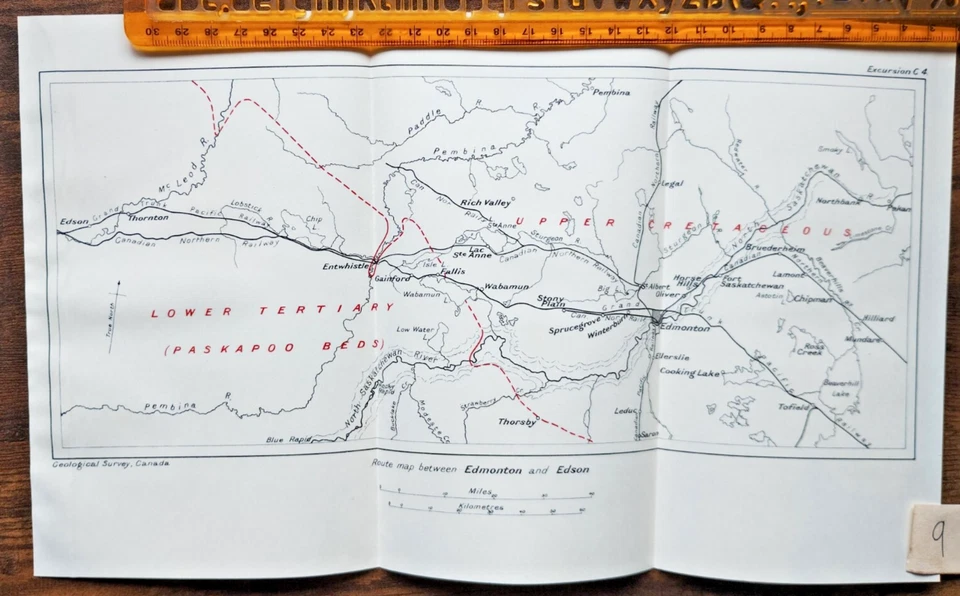 30 29 28 27 26 25 24 23 22 21 20 19 18 17 16 15 14 13 12 11 10 9 8 7 6 5
Excursion C 4.
Pembina
Paddle R.
Pembina R.
McLeod R.
Railway
Northern
Canadian
Legal
Smoky L.
Saskatchewan R.
North
Northbank
Rich Valley
Can.
Nor.
Railway
Lobstick R.
Chip L.
Edson
Grand Trunk Pacific Railway
Thornton
Canadian Northern Railway
UPPER CRETACEOUS
Ste Anne
Sturgeon R.
Sturgeon
Lac Ste Anne
Canadian Northern Railway
Bruederheim
Canadian Northern
Entwhistle
Isle L.
Fallis
Gainford
Wabamun
Wabamun L.
Horse Hills
Fort Saskatchewan
Lamont
Chipman
Beaverhill
St Albert
Big L.
Stony Plain
Grand Trunk Pacific Railway
Sprucegrove
Winterburn
Edmonton
Hilliard
Mundare
True North
LOWER TERTIARY
(PASKAPOO BEDS)
Low Water L.
Ross Creek
Ellerslie
Cooking Lake
Beaverhill Lake
Tofield
North Saskatchewan River
Strawberry
Modeste Cr.
Thorsby
Leduc
Pembina R.
Blue Rapid
Geological Survey, Canada
Route map between Edmonton and Edson
Miles
Kilometres
9